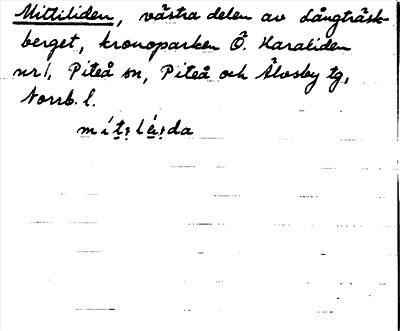 Mittiliden, västra delen av Långträsk-
berget, kronoparken Ö. Haraliden
nr 1, Piteå sn, Piteå och Älvsby tg,
Norrb. l.